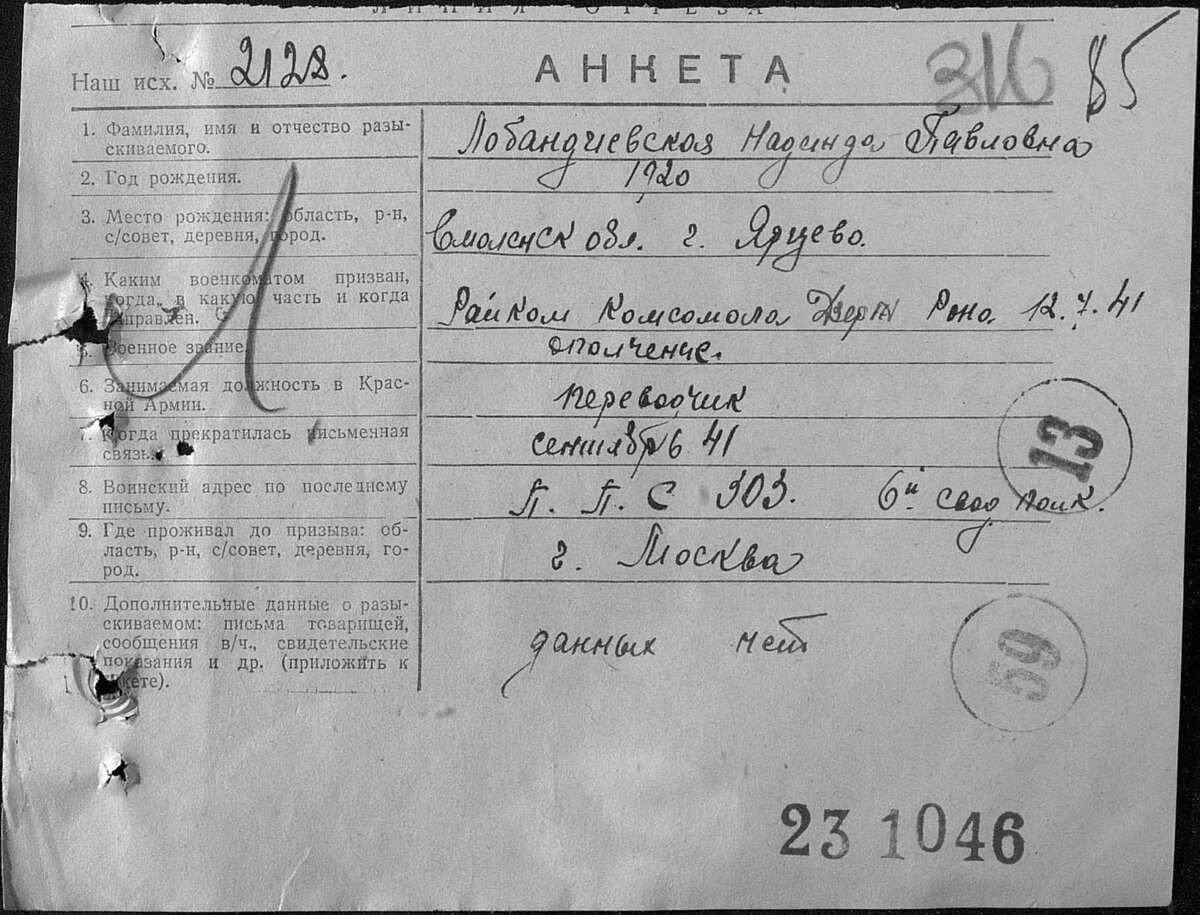 ЛИНИЯ ОТРЕЗА
Наш исх. № 2128.
АНКЕТА
316
85
1. Фамилия, имя и отчество разы-
скиваемого.
Лобандиевская Надежда Павловна
2. Год рождения.
1920
3. Место рождения: область, р-н,
с/совет, деревня, город.
Смоленск обл. г. Ярцево.
4. Каким военкоматом призван,
когда, в какую часть и когда
направлен.
Райком Комсомола Рона 12.7.41
5. Военное звание.
ополчение.
6. Занимаемая должность в Крас-
ной Армии.
переводчик
7. Когда прекратилась письменная
связь.
сентябрь 41
8. Воинский адрес по последнему
письму.
П. П. С 303. 6й свод полк.
9. Где проживал до призыва: об-
ласть, р-н, с/совет, деревня, го-
род.
г. Москва
10. Дополнительные данные о разы-
скиваемом: письма товарищей,
сообщения в/ч., свидетельские
показания и др. (приложить к
анкете).
данных нет
Л
13
59
23 1046